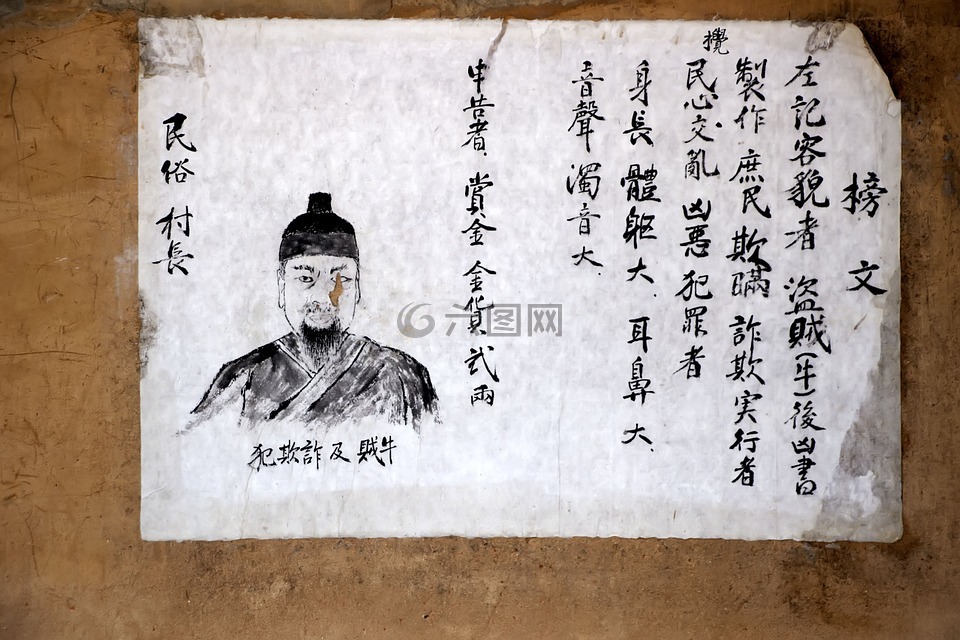 榜文
左記容貌者 盜賊(牛)後凶書
製作 庶民 欺瞞 詐欺実行者
攪
民心交亂 凶悪犯罪者
身長 體軀大. 耳鼻大.
音聲 濁音大.
申告者. 賞金 金貨 弍兩
民俗村長
犯欺詐及賊牛
六图网